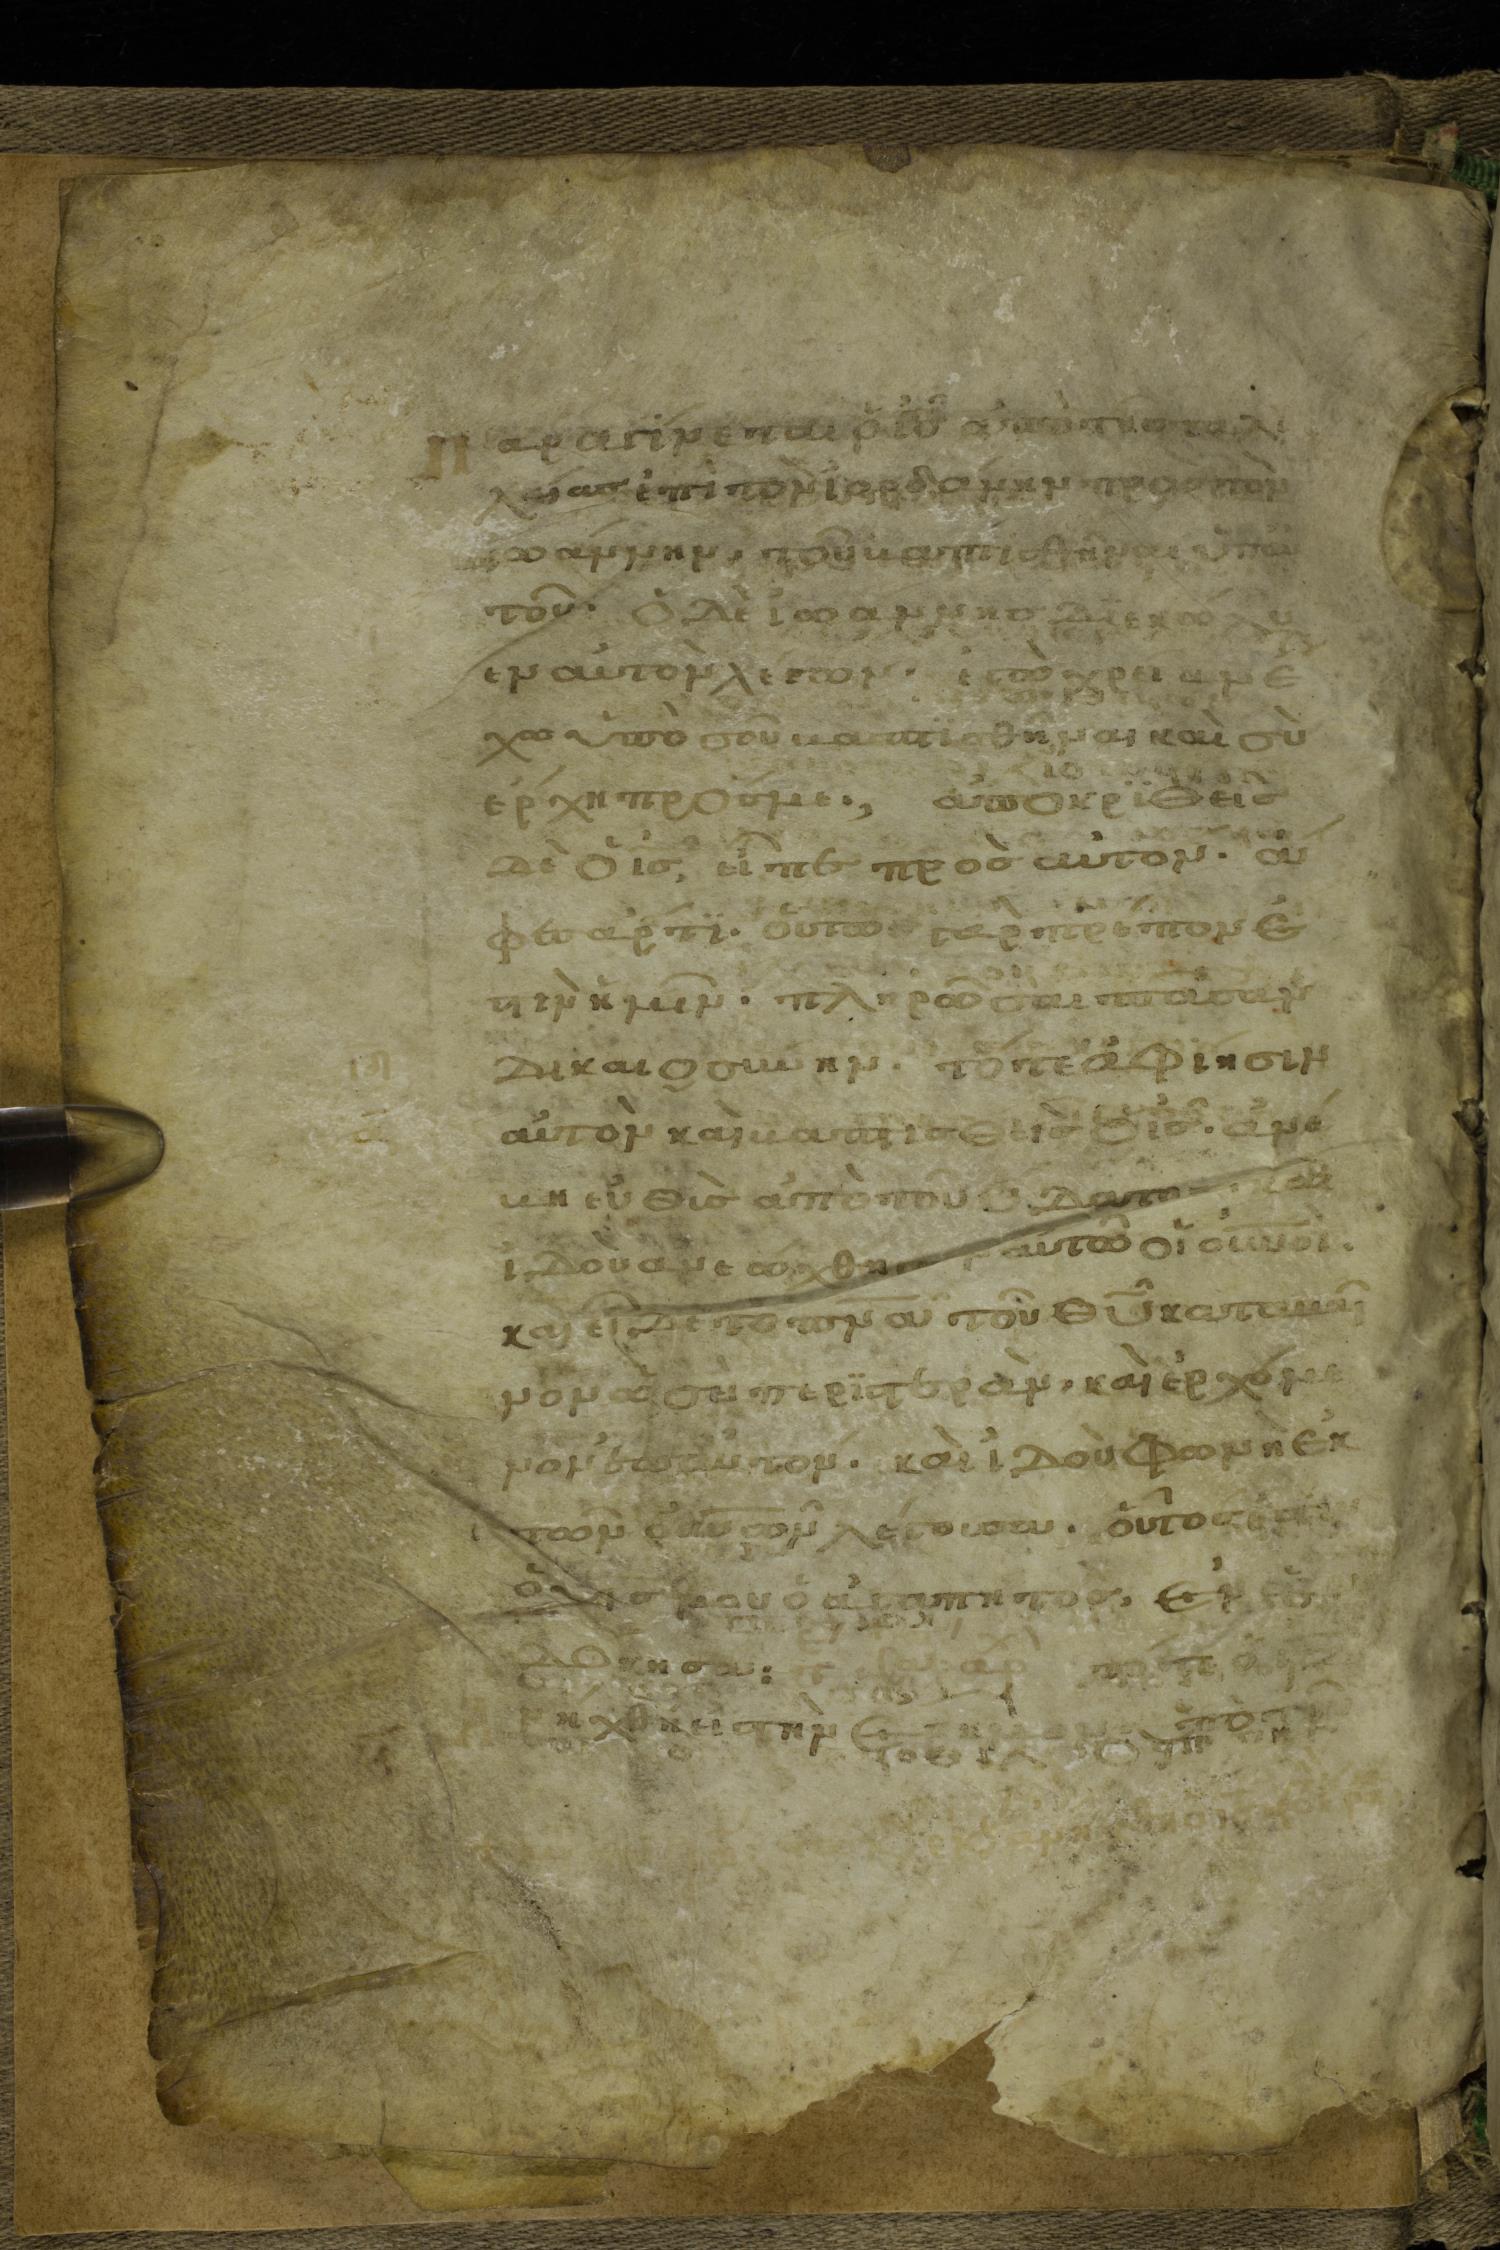 Παραγίνεται ὁ ις ἀπὸ τῆς γαλι
λαίας ἐπὶ τὸν ἰορδάνην πρὸς τὸν
ἰωάννην, τοῦ βαπτισθῆναι ὑπ αὐ
τοῦ· ὁ δὲ ἰωάννης διεκώλυ
εν αὐτὸν λέγων· ἐγὼ χρείαν ἔ
χω ὑπὸ σοῦ βαπτισθῆναι καὶ σὺ
ἔρχη πρός με·, ἀποκριθεὶς
δὲ ὁ ις, εἶπε πρὸς αὐτὸν· ἄ
φες ἄρτι· οὕτω γὰρ πρέπον ἐ
στὶν ἡμῖν· πληρῶσαι πᾶσαν
δικαιοσύνην· τότε ἀφίησιν
αὐτὸν καὶ βαπτισθεὶς ὁ ις· ἀνέ
βη εὐθὺς ἀπὸ τοῦ ὕδατος καὶ
ἰδοὺ ἀνεώχθησαν αὐτῶ οἱ ουνοὶ·
καὶ εἶδε τὸ πνα τοῦ θυ καταβαῖ
νον ὡσεὶ περιστερὰν, καὶ ἐρχόμε
νον ἐπ αὐτόν· καὶ ἰδοὺ φωνὴ ἐκ
τῶν ουνῶν λέγουσα· οὗτός ἐστιν
ὁ υς μου ὁ ἀγαπητὸς, ἐν ὧ
δόκησα: τότε ὁ ις
νήχθη εἰς τὴν ἔρημον ὑπὸ τοῦ